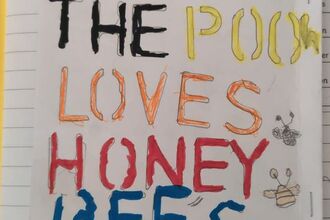 THE POOh
LOVES
HONEY
BEES